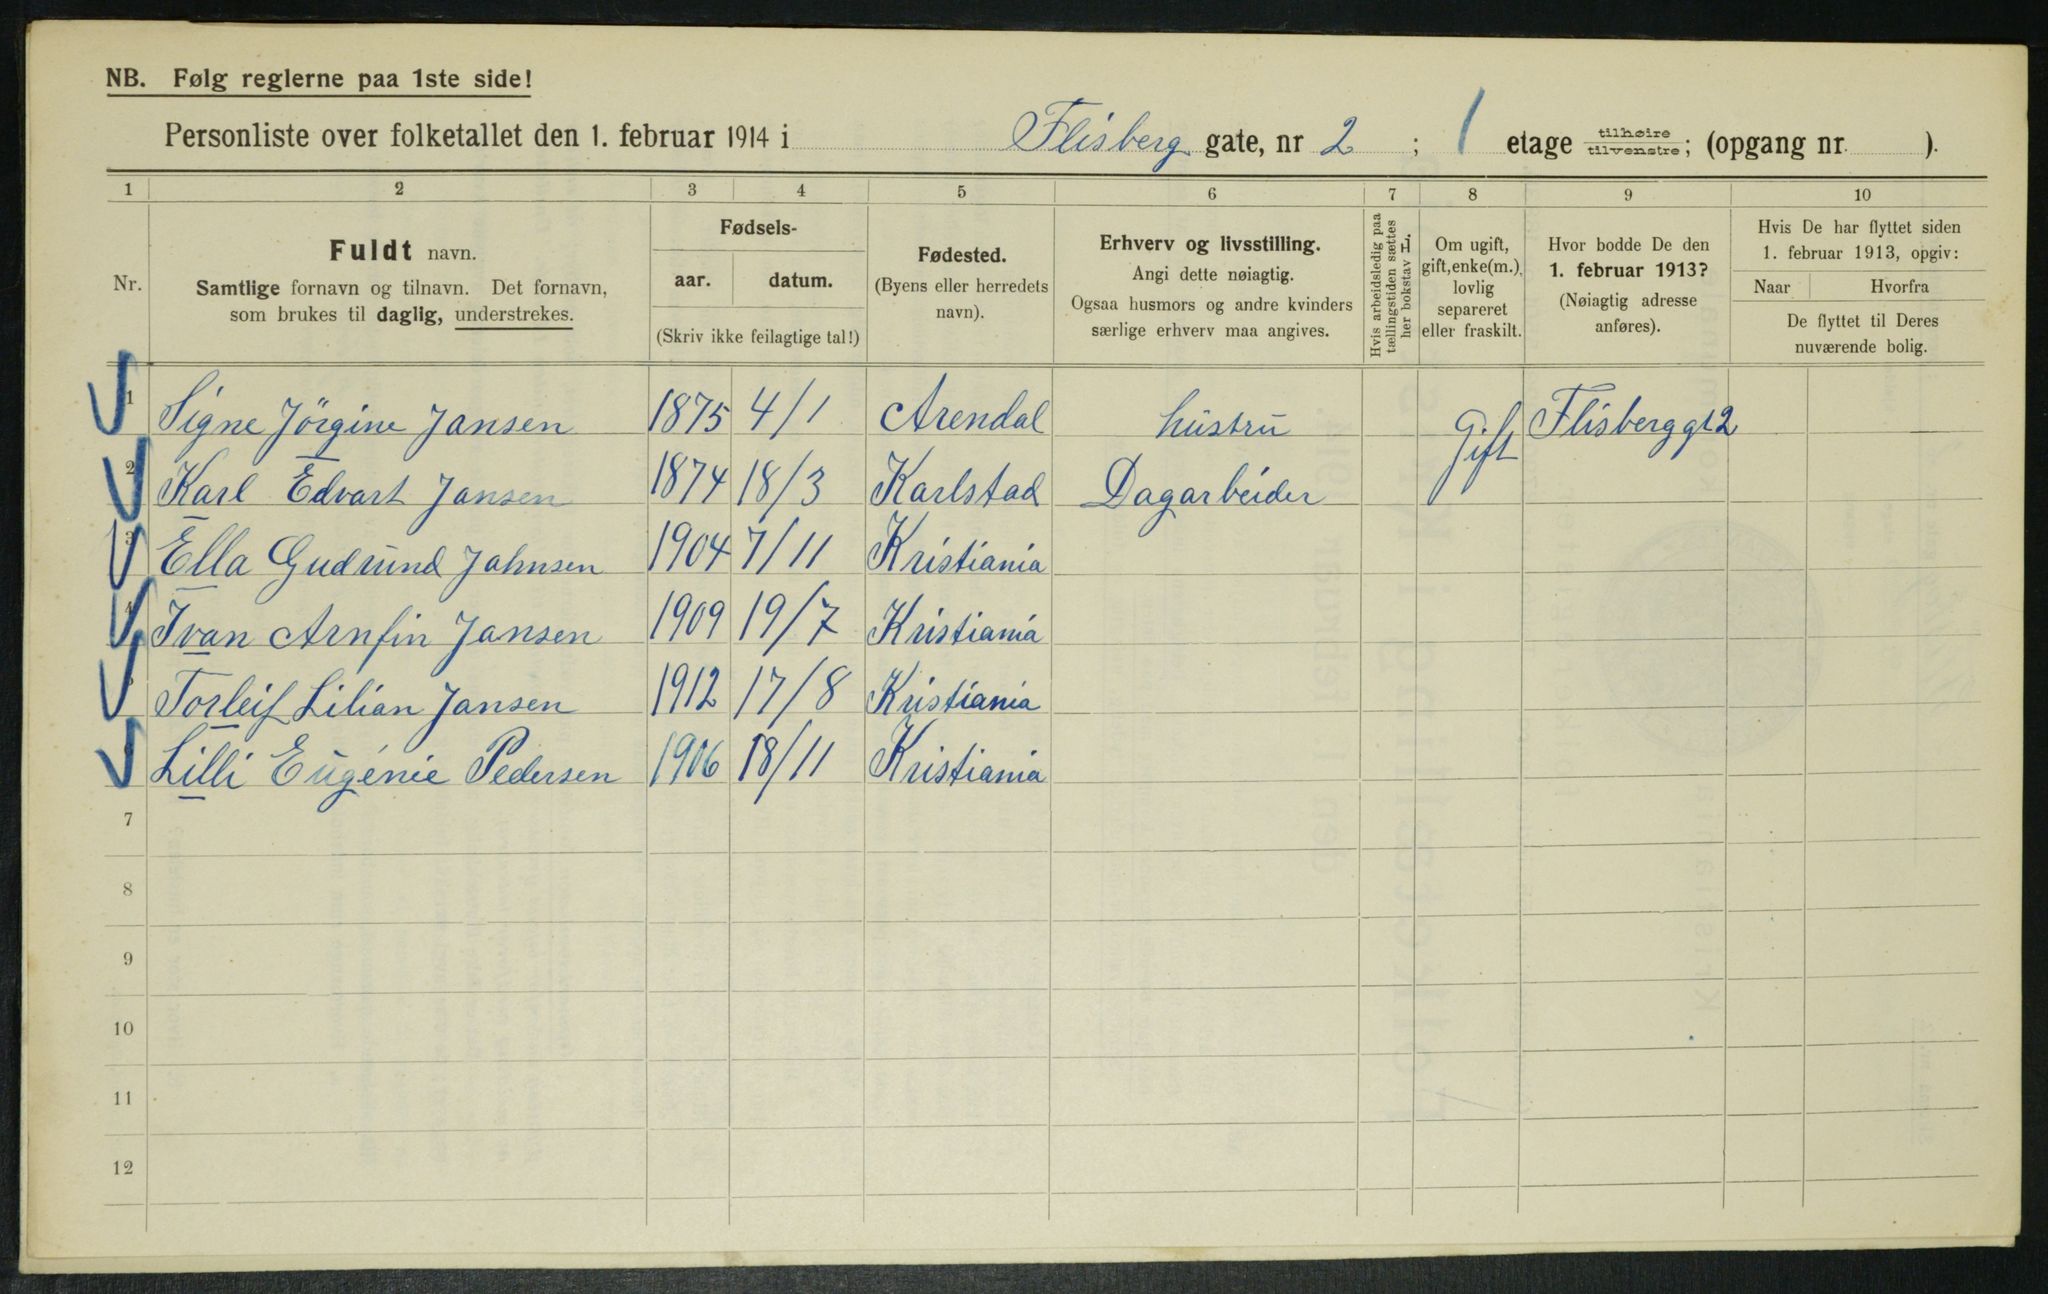 NB. Følg reglerne paa 1ste side!
Personliste over folketallet den 1. februar 1914 i Flisberg gate, nr 2 ; 1 etage tilhøire tilvenstre; (opgang nr ).
1 2 3 4 5 6 7 8 9 10
Nr.
Fuldt navn.
Samtlige fornavn og tilnavn. Det fornavn,
som brukes til daglig, understrekes.
Fødsels-
aar. datum.
(Skriv ikke feilagtige tal!)
Fødested.
(Byens eller herredets
navn).
Erhverv og livsstilling.
Angi dette nøiagtig.
Ogsaa husmors og andre kvinders
særlige erhverv maa angives.
Hvis arbeidsledig paa
tællingstiden sættes
her bokstav L.
Om ugift,
gift, enke(m.),
lovlig
separeret
eller fraskilt.
Hvor bodde De den
1. februar 1913?
(Nøiagtig adresse
anføres).
Hvis De har flyttet siden
1. februar 1913, opgiv:
Naar Hvorfra
De flyttet til Deres
nuværende bolig.
1 Signe Jörgine Jansen 1875 4/1 Arendal hustru Gift Flisberggt 2
2 Karl Edvart Jansen 1874 18/3 Karlstad Dagarbeider
3 Ella Gudrund Jahnsen 1904 7/11 Kristiania
4 Ivan Arnfin Jansen 1909 19/7 Kristiania
5 Torleif Lilian Jansen 1912 17/8 Kristiania
6 Lilli Eugénie Pedersen 1906 18/11 Kristiania
7
8
9
10
11
12